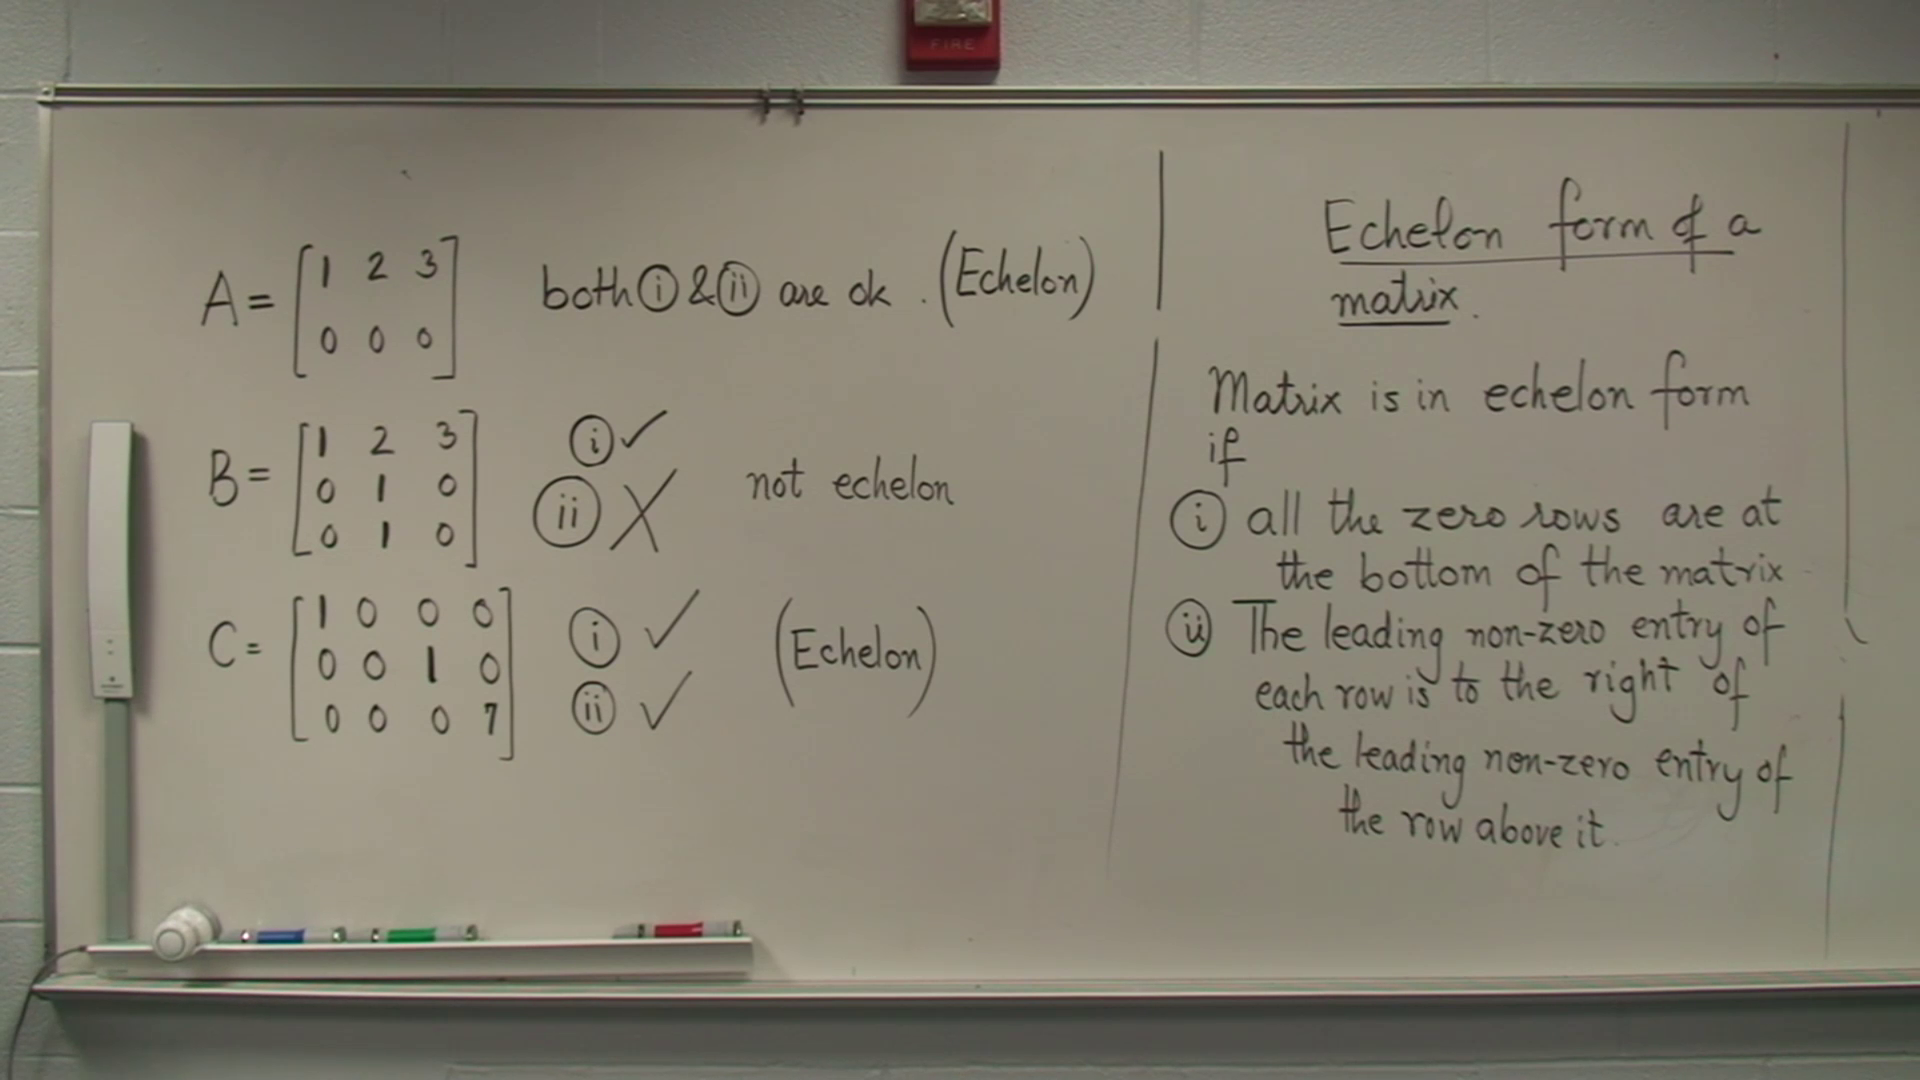 FIRE
A = [1 2 3
0 0 0] both (i) & (ii) are ok. (Echelon)
B = [1 2 3
0 1 0
0 1 0] (i) ✓
(ii) X not echelon
C = [1 0 0 0
0 0 1 0
0 0 0 7] (i) ✓
(ii) ✓ (Echelon)
Echelon form of a
matrix.
Matrix is in echelon form
if
(i) all the zero rows are at
the bottom of the matrix
(ii) The leading non-zero entry of
each row is to the right of
the leading non-zero entry of
the row above it.